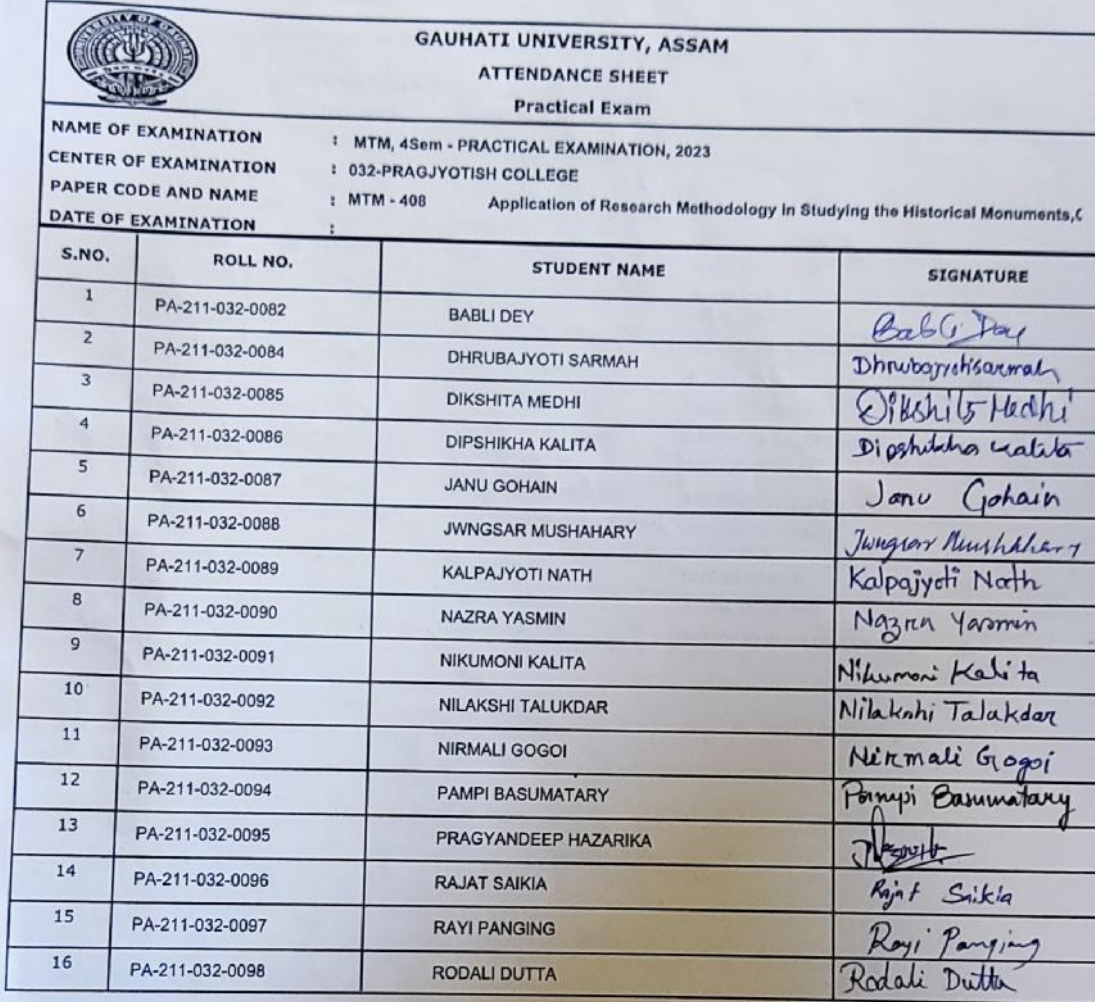 GAUHATI UNIVERSITY, ASSAM
ATTENDANCE SHEET
Practical Exam
NAME OF EXAMINATION : MTM, 4Sem - PRACTICAL EXAMINATION, 2023
CENTER OF EXAMINATION : 032-PRAGJYOTISH COLLEGE
PAPER CODE AND NAME : MTM - 408 Application of Research Methodology In Studying the Historical Monuments,
DATE OF EXAMINATION :
S.NO. ROLL NO. STUDENT NAME SIGNATURE
1 PA-211-032-0082 BABLI DEY Babli Dey
2 PA-211-032-0084 DHRUBAJYOTI SARMAH Dhrubajyoti sarmah
3 PA-211-032-0085 DIKSHITA MEDHI Dikshita Medhi
4 PA-211-032-0086 DIPSHIKHA KALITA Dipshikha Kalita
5 PA-211-032-0087 JANU GOHAIN Janu Gohain
6 PA-211-032-0088 JWNGSAR MUSHAHARY Jwngsar Mushahary
7 PA-211-032-0089 KALPAJYOTI NATH Kalpajyoti Nath
8 PA-211-032-0090 NAZRA YASMIN Nazra Yasmin
9 PA-211-032-0091 NIKUMONI KALITA Nikumoni Kalita
10 PA-211-032-0092 NILAKSHI TALUKDAR Nilakshi Talukdar
11 PA-211-032-0093 NIRMALI GOGOI Nirmali Gogoi
12 PA-211-032-0094 PAMPI BASUMATARY Pampi Basumatary
13 PA-211-032-0095 PRAGYANDEEP HAZARIKA
14 PA-211-032-0096 RAJAT SAIKIA Rajat Saikia
15 PA-211-032-0097 RAYI PANGING Rayi Panging
16 PA-211-032-0098 RODALI DUTTA Rodali Dutta